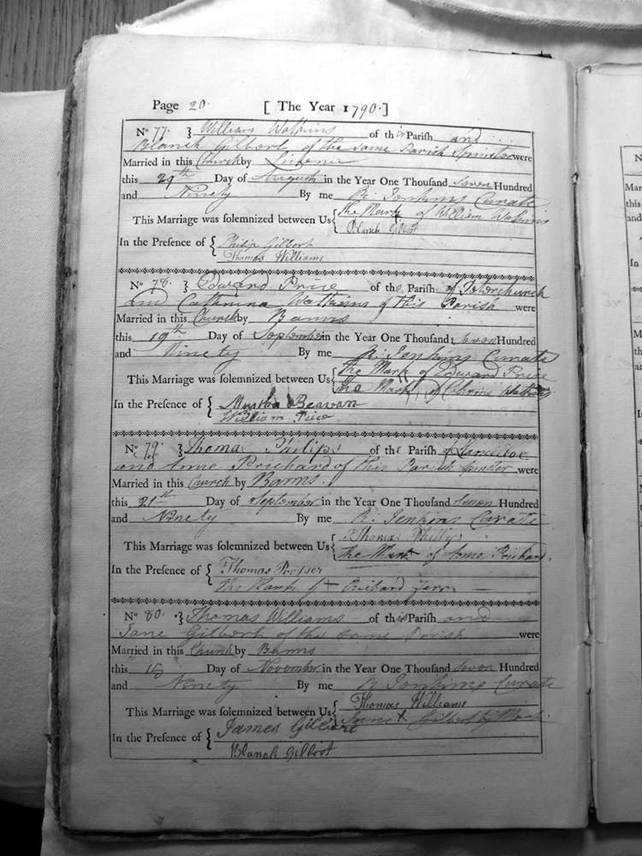 Page 20. [ The Year 1790. ]
No 77. } William Watkins of this Parish and
Blanch Gilbert of the same Parish Spinster were
Married in this Church by Licence
this 29th Day of August in the Year One Thousand Seven Hundred
and Ninety By me R. Jenkins Curate
This Marriage was solemnized between Us { The Mark of William Watkins
Blanch Gilbert
In the Presence of { Philip Gilbert
Thomas Williams
No 78. } Edward Price of the Parish of
and Catherine Watkins of this Parish were
Married in this Church by Banns
this 19th Day of September in the Year One Thousand Seven Hundred
and Ninety By me R. Jenkins Curate
This Marriage was solemnized between Us { The Mark of Edward Price
The Mark of Watkins
In the Presence of { Martha Beavan
William
No 79. } Thomas Philips of the Parish of
and Anne Prichard of this Parish Spinster were
Married in this Church by Banns.
this 21st Day of September in the Year One Thousand Seven Hundred
and Ninety By me R. Jenkins Curate
This Marriage was solemnized between Us { Thomas Philips
The Mark of Anne Prichard.
In the Presence of { Thomas Prosser
The Mark of + Richard
No 80. } Thomas Williams of this Parish and
Jane Gilbert of the same Parish were
Married in this Church by Banns
this Day of November in the Year One Thousand Seven Hundred
and Ninety By me R Jenkins Curate
This Marriage was solemnized between Us { Thomas Williams
Jane x Gilbert by Mark.
In the Presence of { James Gilbert
Blanch Gilbert